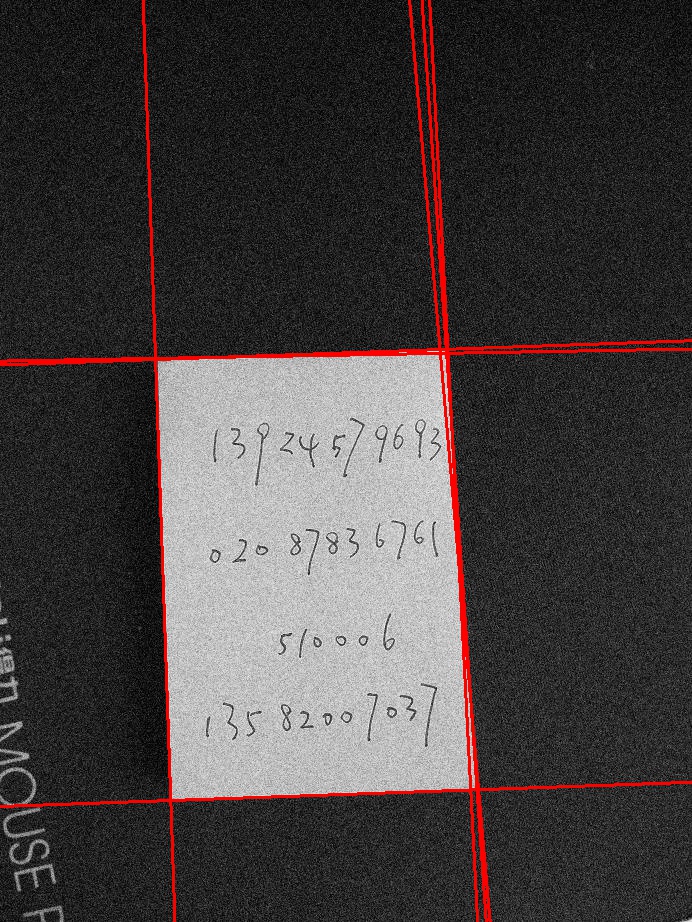 13924579693
020 87836761
510006
13582007037
得力 MOUSE P